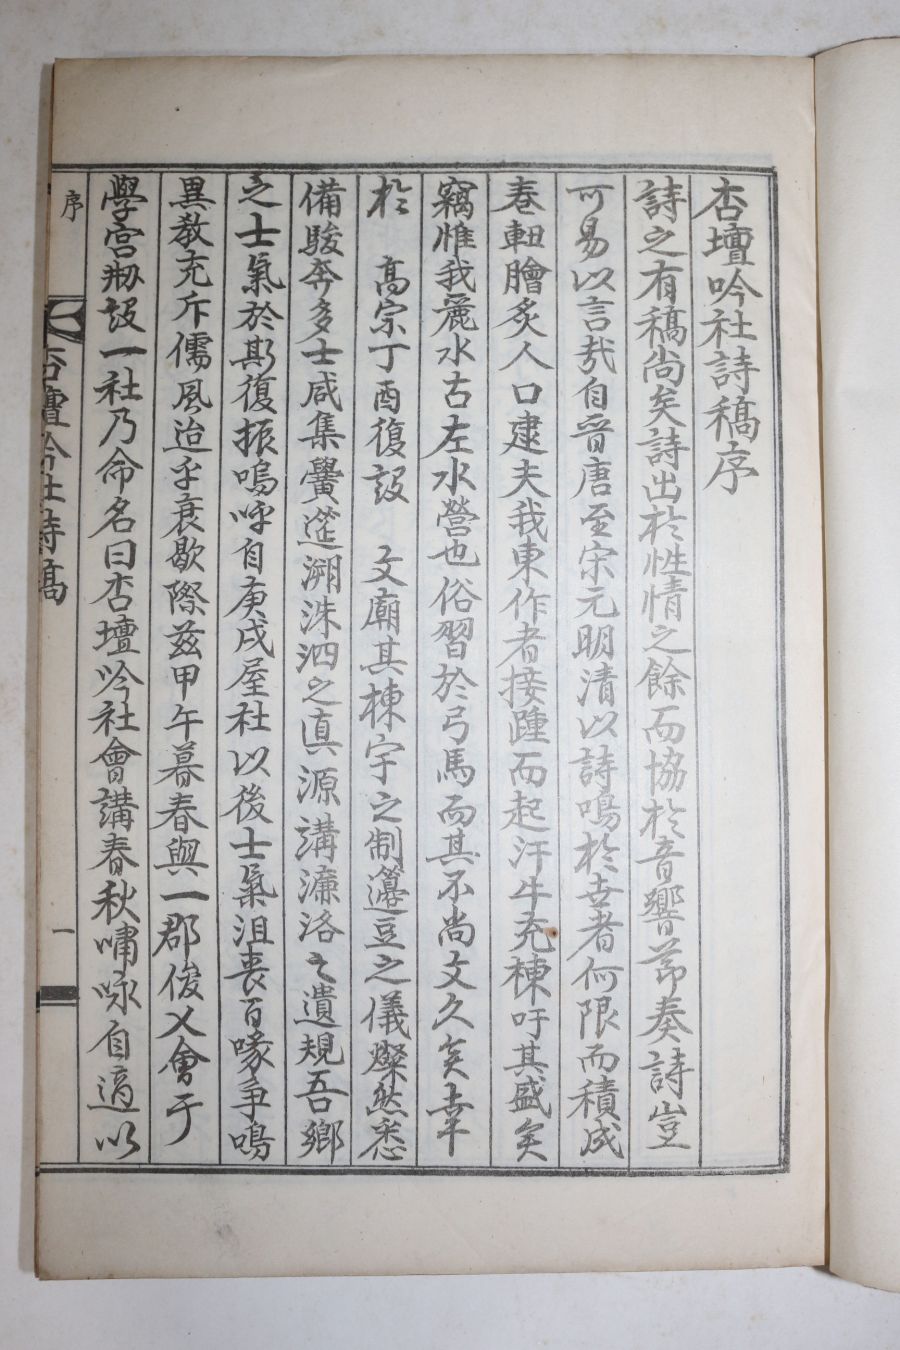 杏壇吟社詩稿序
詩之有稿尚矣詩出於性情之餘而協於音響節奏詩豈
可易以言哉自晉唐至宋元明清以詩鳴於世者何限而積成
卷軸膾炙人口逮夫我東作者接踵而起汗牛充棟吁其盛矣
竊惟我麗水古左水營也俗習於弓馬而其不尚文久矣幸
於 高宗丁酉復設 文廟其棟宇之制籩豆之儀燦然悉
備駿奔多士咸集黌筵溯洙泗之眞源溝濂洛之遺規吾鄉
之士氣於斯復振嗚呼自庚戌屋社以後士氣沮喪百喙爭鳴
異教充斥儒風迨乎衰歇際玆甲午暮春與一郡俊乂會于
學宮刱設一社乃命名曰杏壇吟社會講春秋嘯咏自適以
序
杏壇吟社詩稿
一